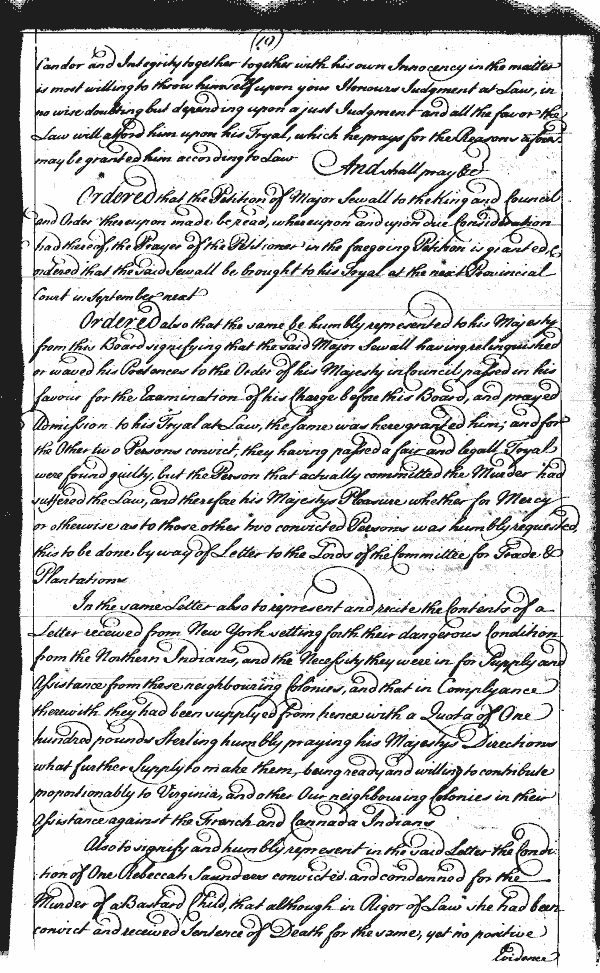 (19)
Candor and Integrity together together with his own Innocency in the matter
is most willing to throw himself upon your Honours Judgment at Law, in
no wise doubting but depending upon a just Judgment and all the favor the
Law will afford him upon his Tryal, which he prays for the Reasons afores.
may be granted him according to Law And shall pray &c
Ordered that the Petition of Major Sewall to the King and Council
and Order thereupon made be read, whereupon and upon due Consideration
had thereof, the Prayer of the Petitioner in the foregoing Petition is granted &
ordered that the said Sewall be brought to his Tryal at the next Provincial
Court in September next
Ordered also that the same be humbly represented to his Majesty
from this Board signifying that the said Major Sewall having relinquished
or waved his Pretences to the Order of his Majesty in Council passed in his
favour for the Examination of his Charge before this Board, and prayed
Admission to his Tryal at Law, the same was here granted him; and for
the Other two Persons convict, they having passed a fair and legall Tryal
were found guilty, but the Person that actually committed the Murder had
suffered the Law, and therefore his Majestys Pleasure whether for Mercy
or otherwise as to those other two convicted Persons was humbly requested,
this to be done by way of Letter to the Lords of the Committee for Trade &
Plantations
In the same Letter also to represent and recite the Contents of a
Letter received from New York setting forth their dangerous Condition
from the Northern Indians, and the Necessity they were in for Supply and
Assistance from these neighbouring Colonies, and that in Complyance
therewith they had been supplyed from hence with a Quota of One
hundred pounds Sterling humbly praying his Majestys Directions
what further Supply to make them, being ready and willing to contribute
proportionably to Virginia, and other Our neighbouring Colonies in their
Assistance against the French and Cannada Indians
Also to signify and humbly represent in the said Letter the Condi-
tion of One Rebeccah Saunders convicted and condemned for the
Murder of a Bastard Child, that although in Rigor of Law she had been
convict and received Sentence of Death for the same, yet no positive
Evidence